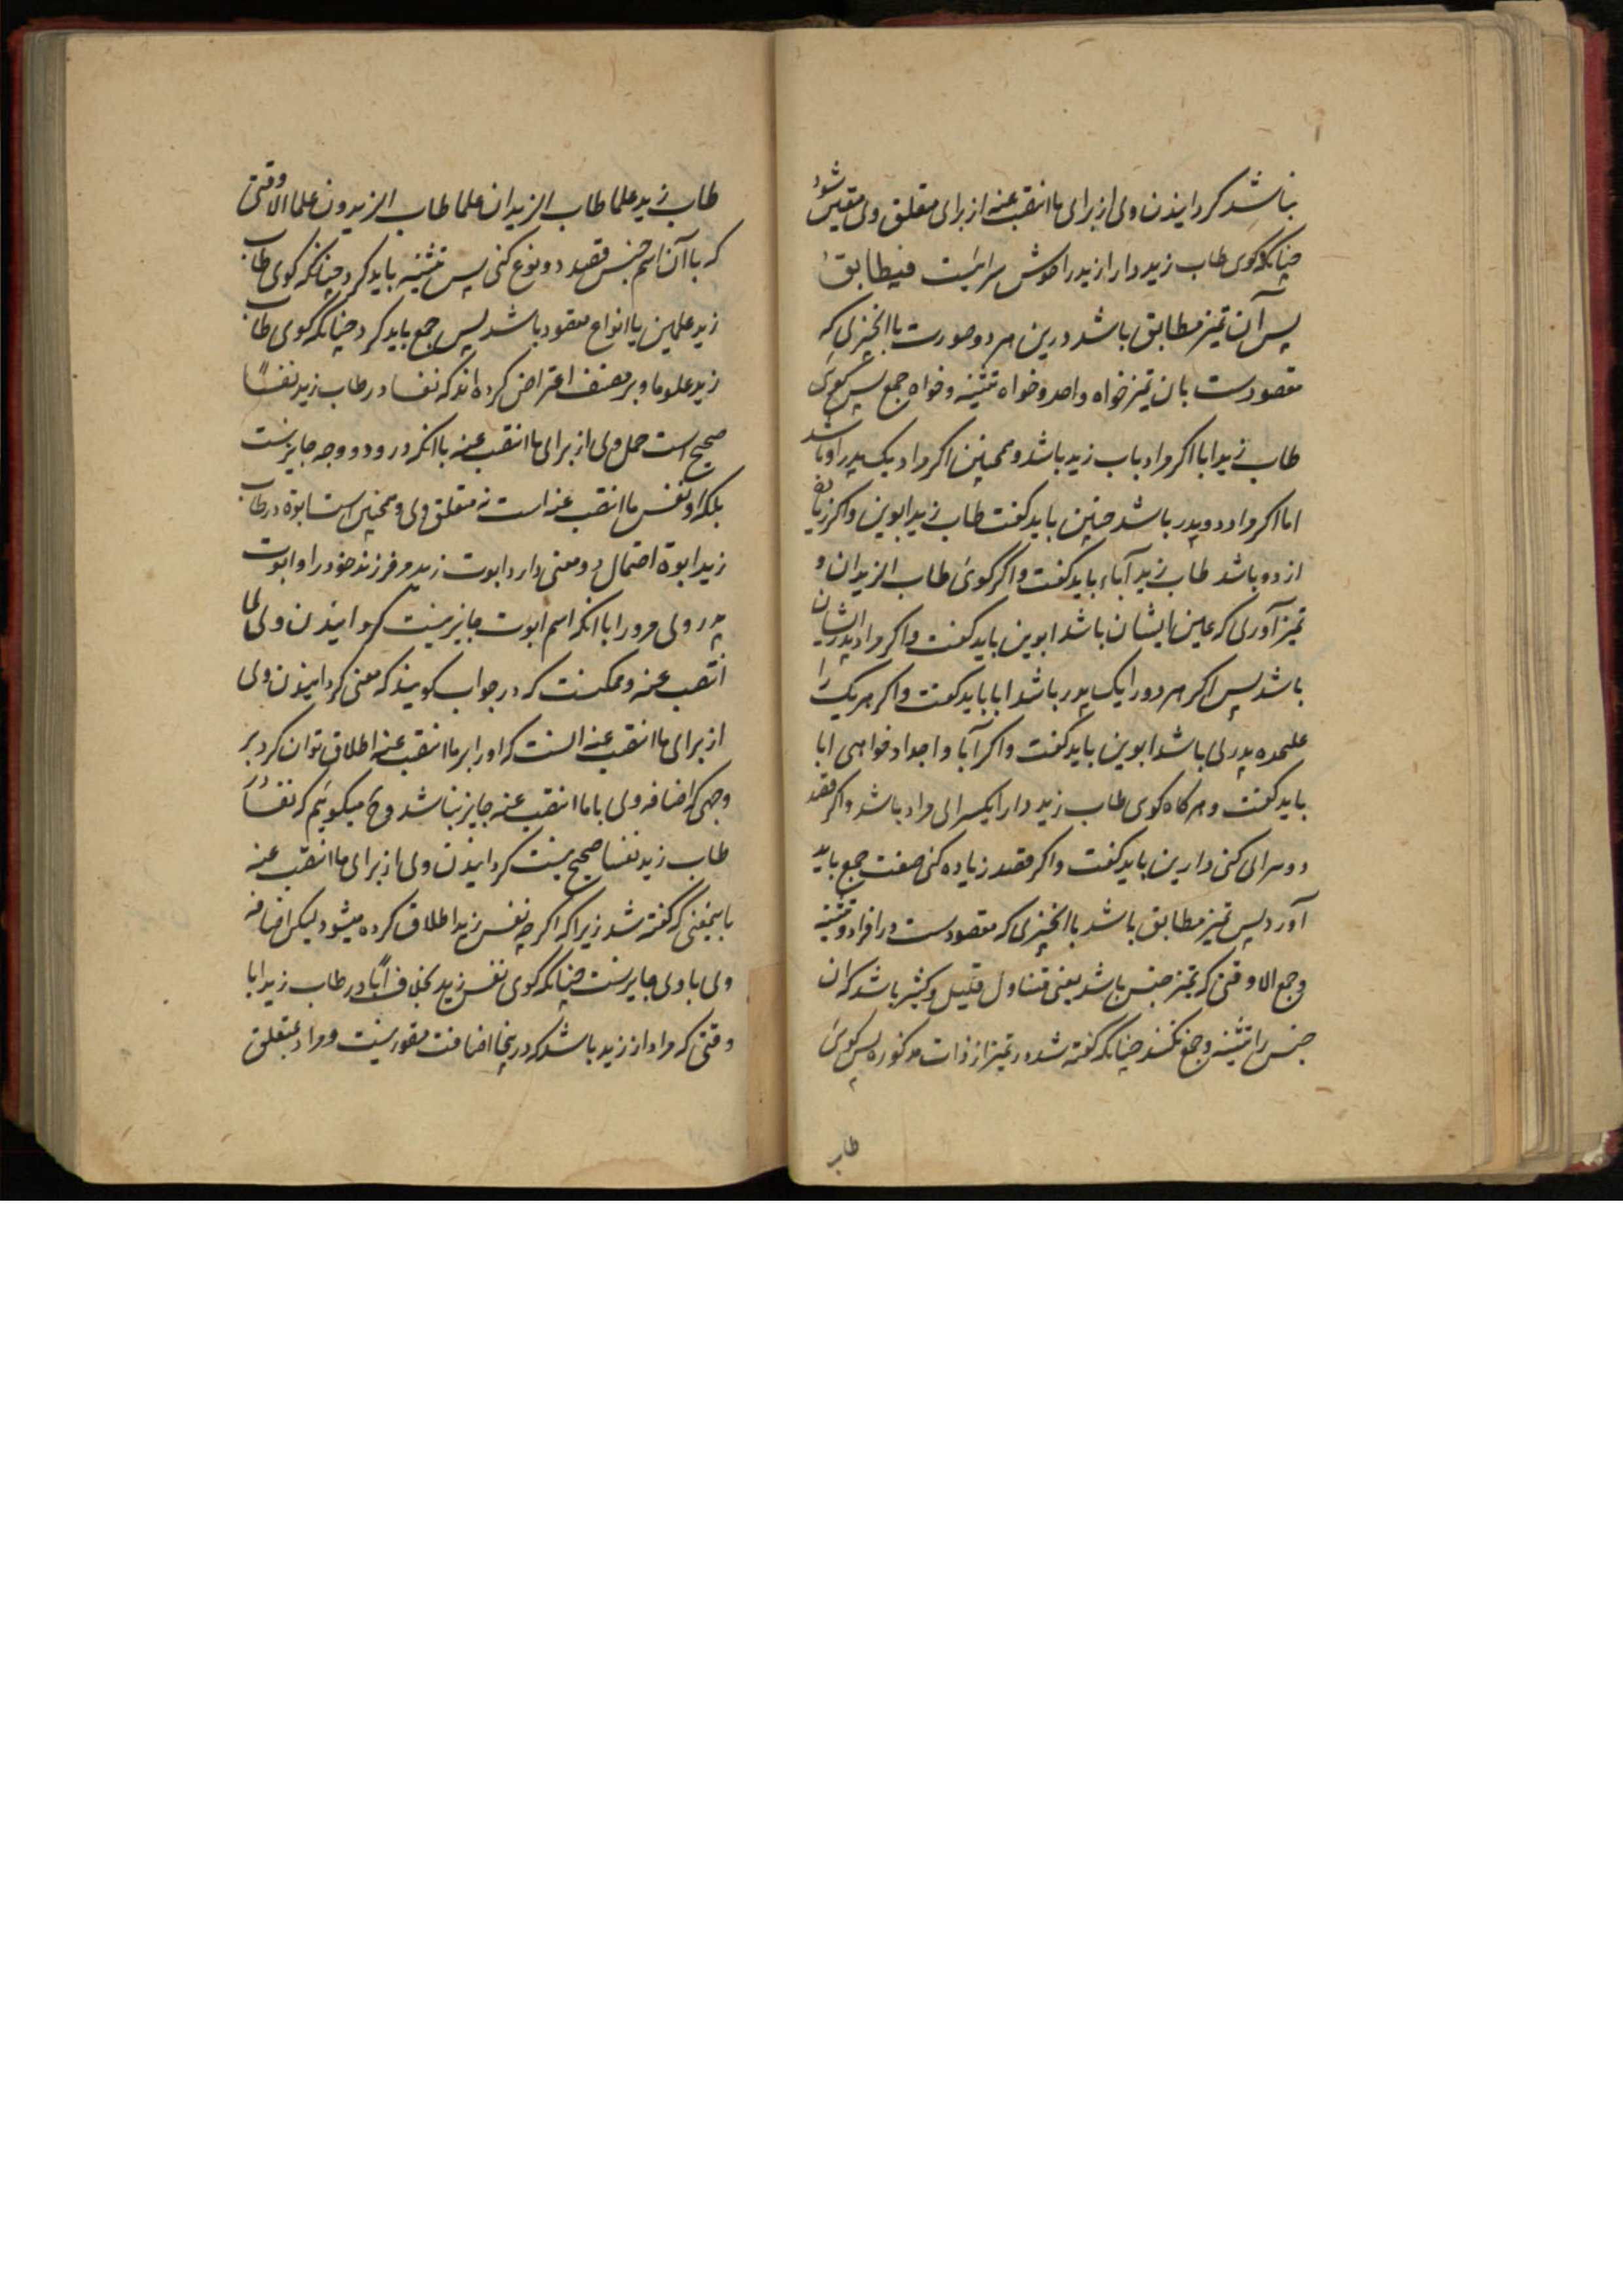 نباشد کردانیدن ولی از برای ما انتصب عنه از برای متعلق ولی متعین شود
چنانکه کوی طاب زید دارا زید را خوش سرایست فیطابق
پس آن تمیز مطابق باشد درین هر دو صورت با انچیزی که
مقصودست بان تمیز خواه واحد و خواه تثنیه و خواه جمع پس کوی
طاب زید ابا اکر مراد باب زید باشد و همچنین اکر مراد یک پدر او باشد
اما اکر مراد دو پدر باشد چنین باید کفت طاب زید ابوین و اکر زیاده
از دو باشد طاب زید آباء باید کفت و اکر کوی طاب الزیدان و
تمیز آوری که عین ایشان باشد ابوین باید کفت و اکر مراد پدر ایشان
باشد پس اکر هر دو را یک پدر باشد ابا باید کفت و اکر هر یک را
علیحده پدری باشد ابوین باید کفت و اکر آبا و اجداد خواهی ابا
باید کفت و هر کاه کوی طاب زید دارا یکسرای مراد باشد و اکر قصد
دو سرای کنی دارین باید کفت و اکر قصد زیاده کنی صفت جمع باید
آورد پس تمیز مطابق باشد با انچیزی که مقصودست در افراد و تثنیه
و جمع الا وقتی که تمیز جنس باشد یعنی متناول قلیل و کثیر باشد که ان
جنس را تثنیه و جمع نکنند چنانکه کفته شد در تمیز از ذات مذکوره پس کوی
طاب
طاب زید علما طاب الزیدان علما طاب الزیدون علما الا وقتی
که باآن اسم جنس قصد دو نوع کنی پس تثنیه باید کرد چنانکه کوی طاب
زید علمین یا انواع مقصود باشد پس جمع باید کرد چنانکه کوی طاب
زید علوما و بر مصنف اعتراض کرده اند که نفسا در طاب زید نفسا
صحیح است حمل ولی از برای ما انتصب عنه با انکه درو دو وجه جایز نیست
بلکه او نفس ما انتصب عنه است نه متعلق ولی و همچنین است ابوة در طاب
زید ابوة احتمال دو معنی دارد ابوت زید مر فرزند خود را و ابوت
پدر ولی مر ورا با انکه اسم ابوت جایز نیست کردانیدن ولی لما
انتصب عنه و ممکنست که در جواب کویند که معنی کردانیدن ولی
از برای ما انتصب عنه انست که او را بر ما انتصب عنه اطلاق توان کرد بر
وجهی که اضافه ولی با ما انتصب عنه جایز نباشد و ح میکویم که نفسا در
طاب زید نفسا صحیح نیست کردانیدن ولی از برای ما انتصب عنه
باینمعنی که کفته شد زیرا که اکر چه نفس زید اطلاق کرده میشود لیکن اضافه
ولی باوی جایز نیست چنانکه کوی نفس زید بخلاف ابا در طاب زید ابا
وقتی که مراد از زید باشد که درینجا اضافت مقصور نیست و مراد بمتعلق